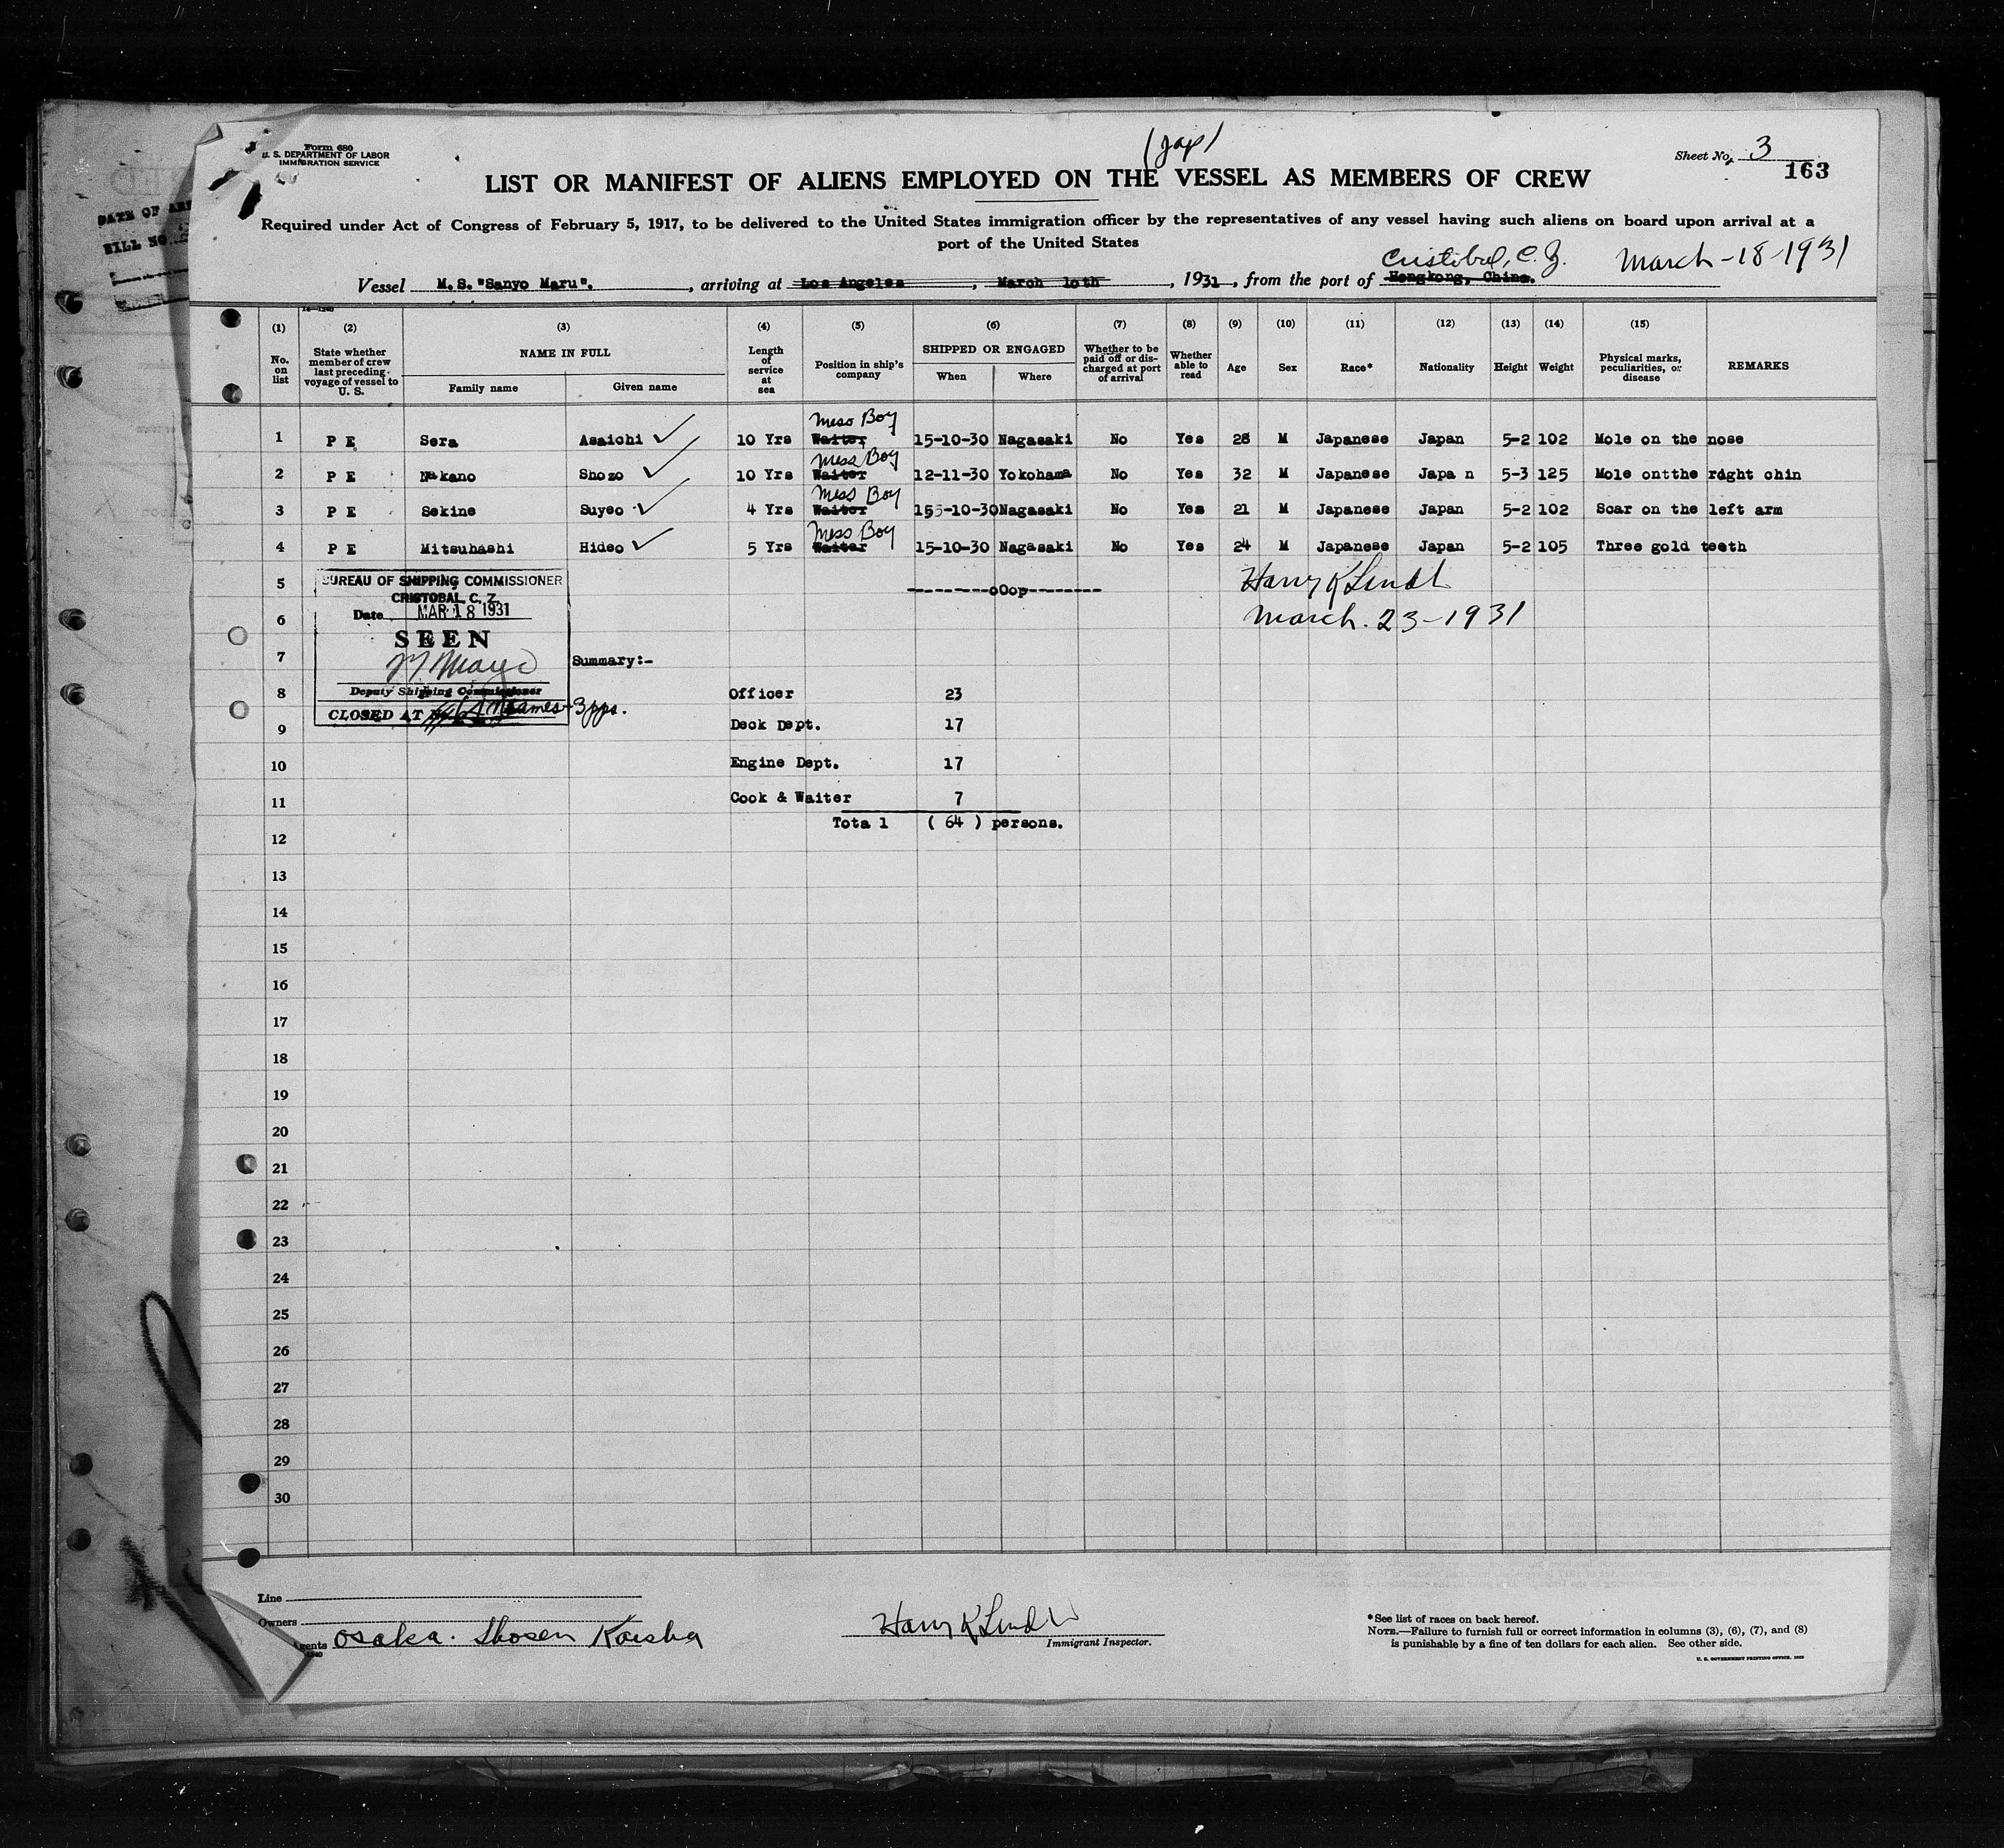 Form 680
U. S. DEPARTMENT OF LABOR
IMMIGRATION SERVICE
(Jap)
Sheet No. 3
163
LIST OR MANIFEST OF ALIENS EMPLOYED ON THE VESSEL AS MEMBERS OF CREW
Required under Act of Congress of February 5, 1917, to be delivered to the United States immigration officer by the representatives of any vessel having such aliens on board upon arrival at a
port of the United States
Cristobal, C. Z. March-18-1931
Vessel M.S."Sanyo Maru". , arriving at Los Angeles , March 10th , 1931 , from the port of Hongkong, China.
(1) (2) (3) (4) (5) (6) (7) (8) (9) (10) (11) (12) (13) (14) (15)
No. on list State whether member of crew last preceding voyage of vessel to U. S. NAME IN FULL Family name Given name Length of service at sea Position in ship's company SHIPPED OR ENGAGED When Where Whether to be paid off or discharged at port of arrival Whether able to read Age Sex Race* Nationality Height Weight Physical marks, peculiarities, or disease REMARKS
Mess Boy
1 P E Sera Asaichi 10 Yrs Waiter 15-10-30 Nagasaki No Yes 28 M Japanese Japan 5-2 102 Mole on the nose
Mess Boy
2 P E Nakano Shozo 10 Yrs Waiter 12-11-30 Yokohama No Yes 32 M Japanese Japa n 5-3 125 Mole ontthe right chin
Mess Boy
3 P E Sekine Suyeo 4 Yrs Waiter 155-10-30Nagasaki No Yes 21 M Japanese Japan 5-2 102 Scar on the left arm
Mess Boy
4 P E Mitsuhashi Hideo 5 Yrs Waiter 15-10-30 Nagasaki No Yes 24 M Japanese Japan 5-2 105 Three gold teeth
5 BUREAU OF SHIPPING COMMISSIONER ---------oOop--------- Harry K Lindl
CRISTOBAL C. Z.
Date MAR 18 1931
6 March. 23-1931
SEEN
7 Summary:-
8 Deputy Shipping Commissioner Officer 23
CLOSED AT No. 64 Names-3pps.
9 Deck Dept. 17
10 Engine Dept. 17
11 Cook & Waiter 7
12 Tota l ( 64 ) persons.
13
14
15
16
17
18
19
20
21
22
23
24
25
26
27
28
29
30
Line
Owners
Agents Osaka Shosen Kaisha
Harry K Lindl
Immigrant Inspector.
*See list of races on back hereof.
NOTE.—Failure to furnish full or correct information in columns (3), (6), (7), and (8)
is punishable by a fine of ten dollars for each alien. See other side.
U. S. GOVERNMENT PRINTING OFFICE: 1929